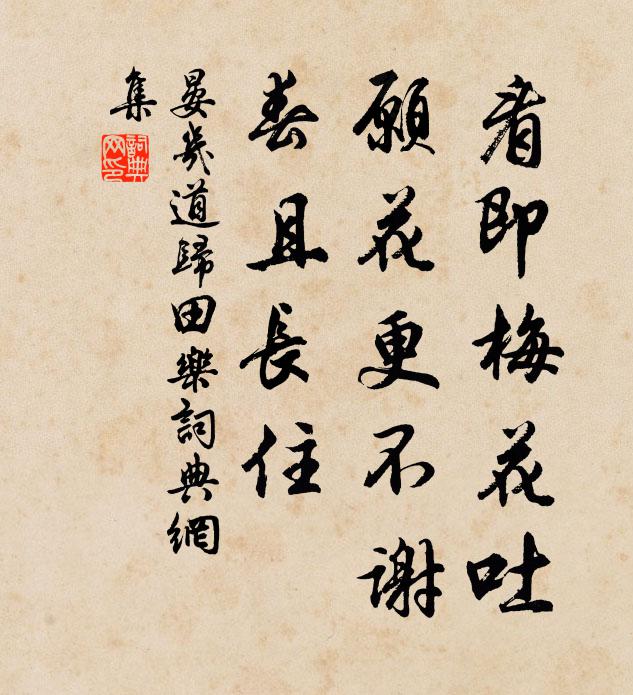 看即梅花吐
願花更不謝
春且長住
晏幾道歸田樂詞典網
集
詞典網印